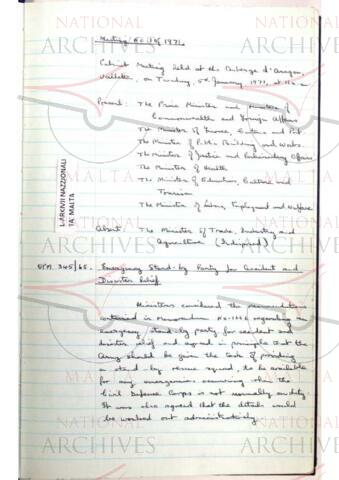 Meeting No. 1971.
Cabinet Meeting held at the Auberge d'Aragon,
Valletta, on Tuesday, 5th January, 1971, at
Present: The Prime Minister and Minister of
Commonwealth and Foreign Affairs
The Minister of Finance, Customs and Port.
The Minister of Public Building and Works.
The Minister of Justice and Parliamentary Affairs.
The Minister of Health
The Minister of Education, Culture and
Tourism
The Minister of Labour, Employment and Welfare
Absent: The Minister of Trade, Industry and
Agriculture (Indisposed)
OPM. 345/65. Emergency Stand-by Party for Accident and
Disaster Relief
Ministers considered the recommendations
contained in Memorandum No. regarding an
emergency stand-by party for accident and
disaster relief and agreed in principle that the
Army should be given the task of providing
a stand-by rescue squad, to be available
for any emergencies occurring when the
Civil Defence Corps is not normally on duty.
It was also agreed that the details would
be worked out administratively.
L-ARKIVJI NAZZJONALI
TA' MALTA
NATIONAL
ARCHIVES
MALTA